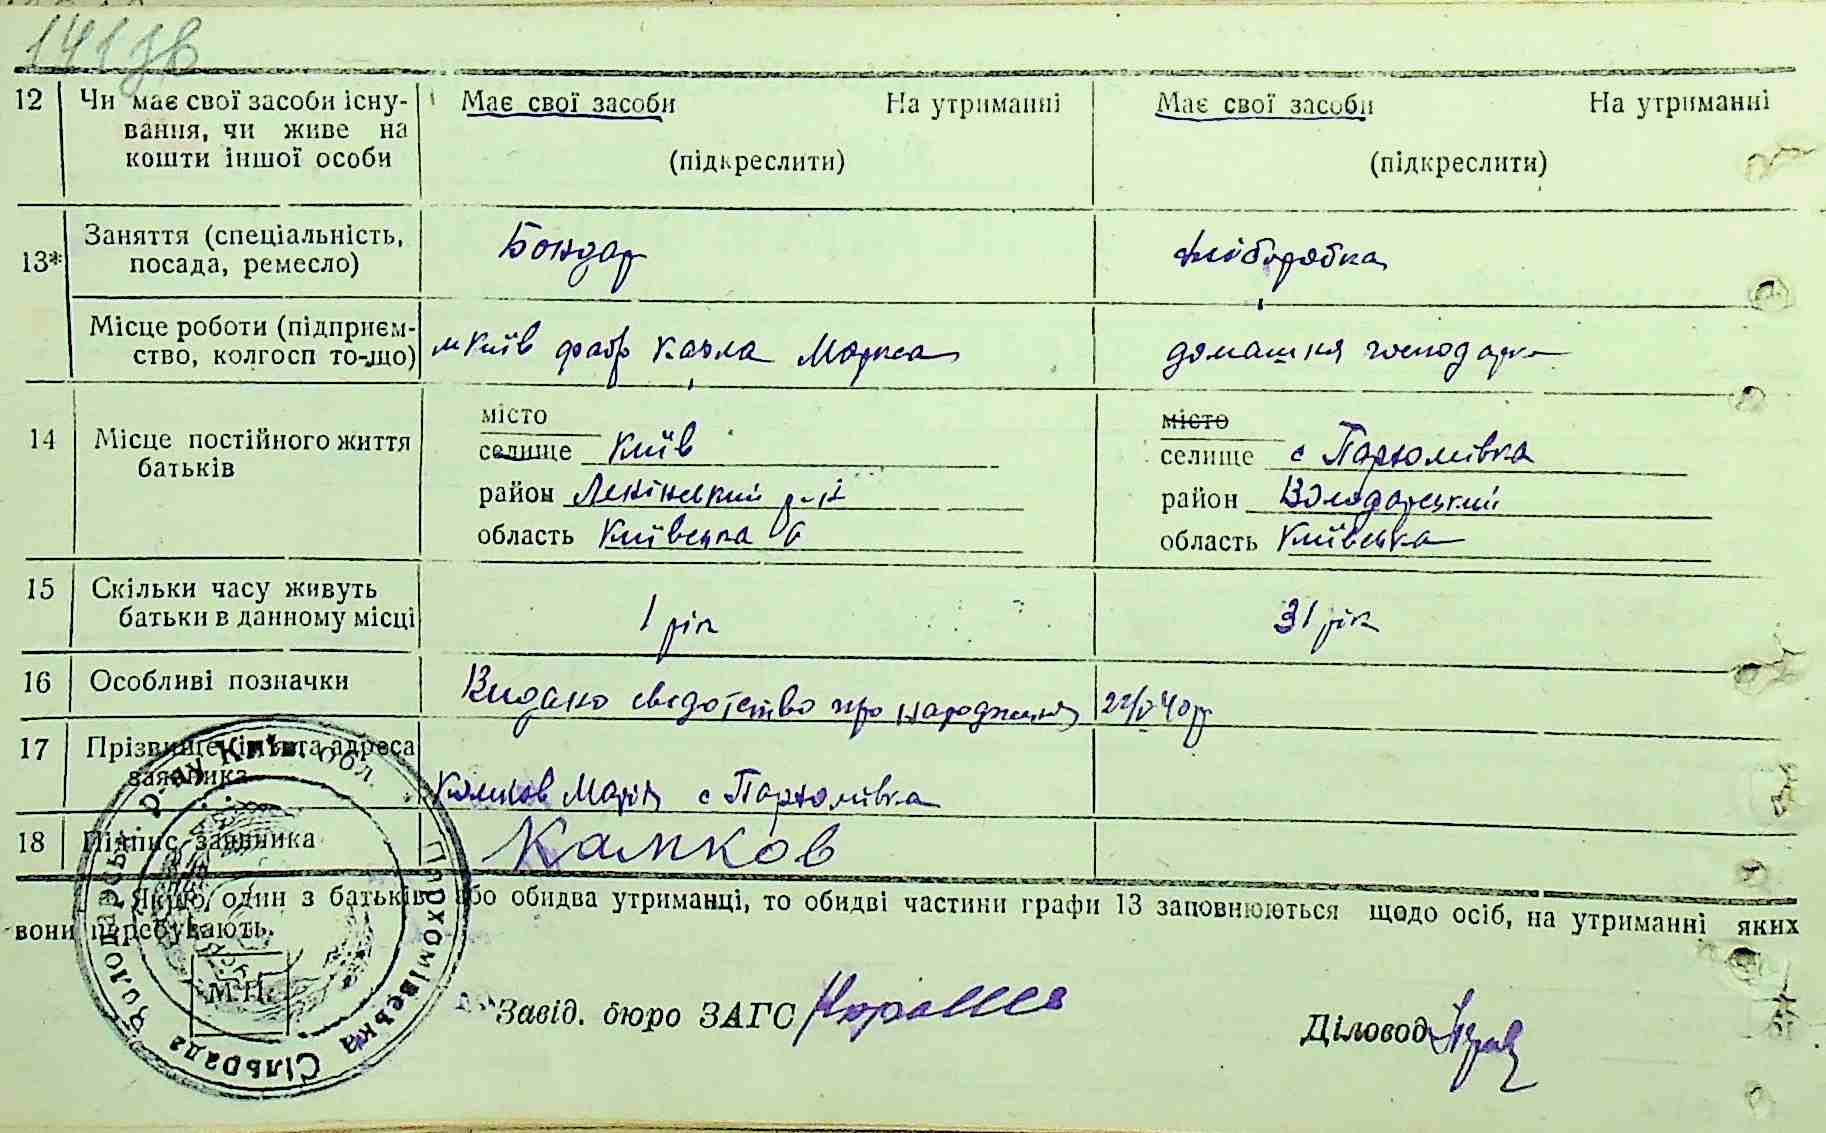 12 Чи має свої засоби існу- Має свої засоби На утриманні Має свої засоби На утриманні
вання, чи живе на
кошти іншої особи (підкреслити) (підкреслити)
13* Заняття (спеціальність, Бондар
посада, ремесло)
Місце роботи (підприєм- м Київ фабр Карла Маркса домашня господарка
ство, колгосп то-що)
місто місто
14 Місце постійного життя селище Київ селище с Пархомівка
батьків
район Ленінський р-н район Володарський
область Київська область Київська
15 Скільки часу живуть 1 рік 31 рік
батьки в данному місці
16 Особливі позначки Видано свідотство про народження
17 Прізвище, ім'я та адреса
заявника Камков Марія с Пархомівка
18 Підпис заявника Камков
Якщо, один з батьків або обидва утриманці, то обидві частини графи 13 заповнюються щодо осіб, на утриманні яких
вони перебувають.
М.П.
Завід. бюро ЗАГС
Діловод
Пархомівська Сільрада Володарськ р-ну Київ. обл.